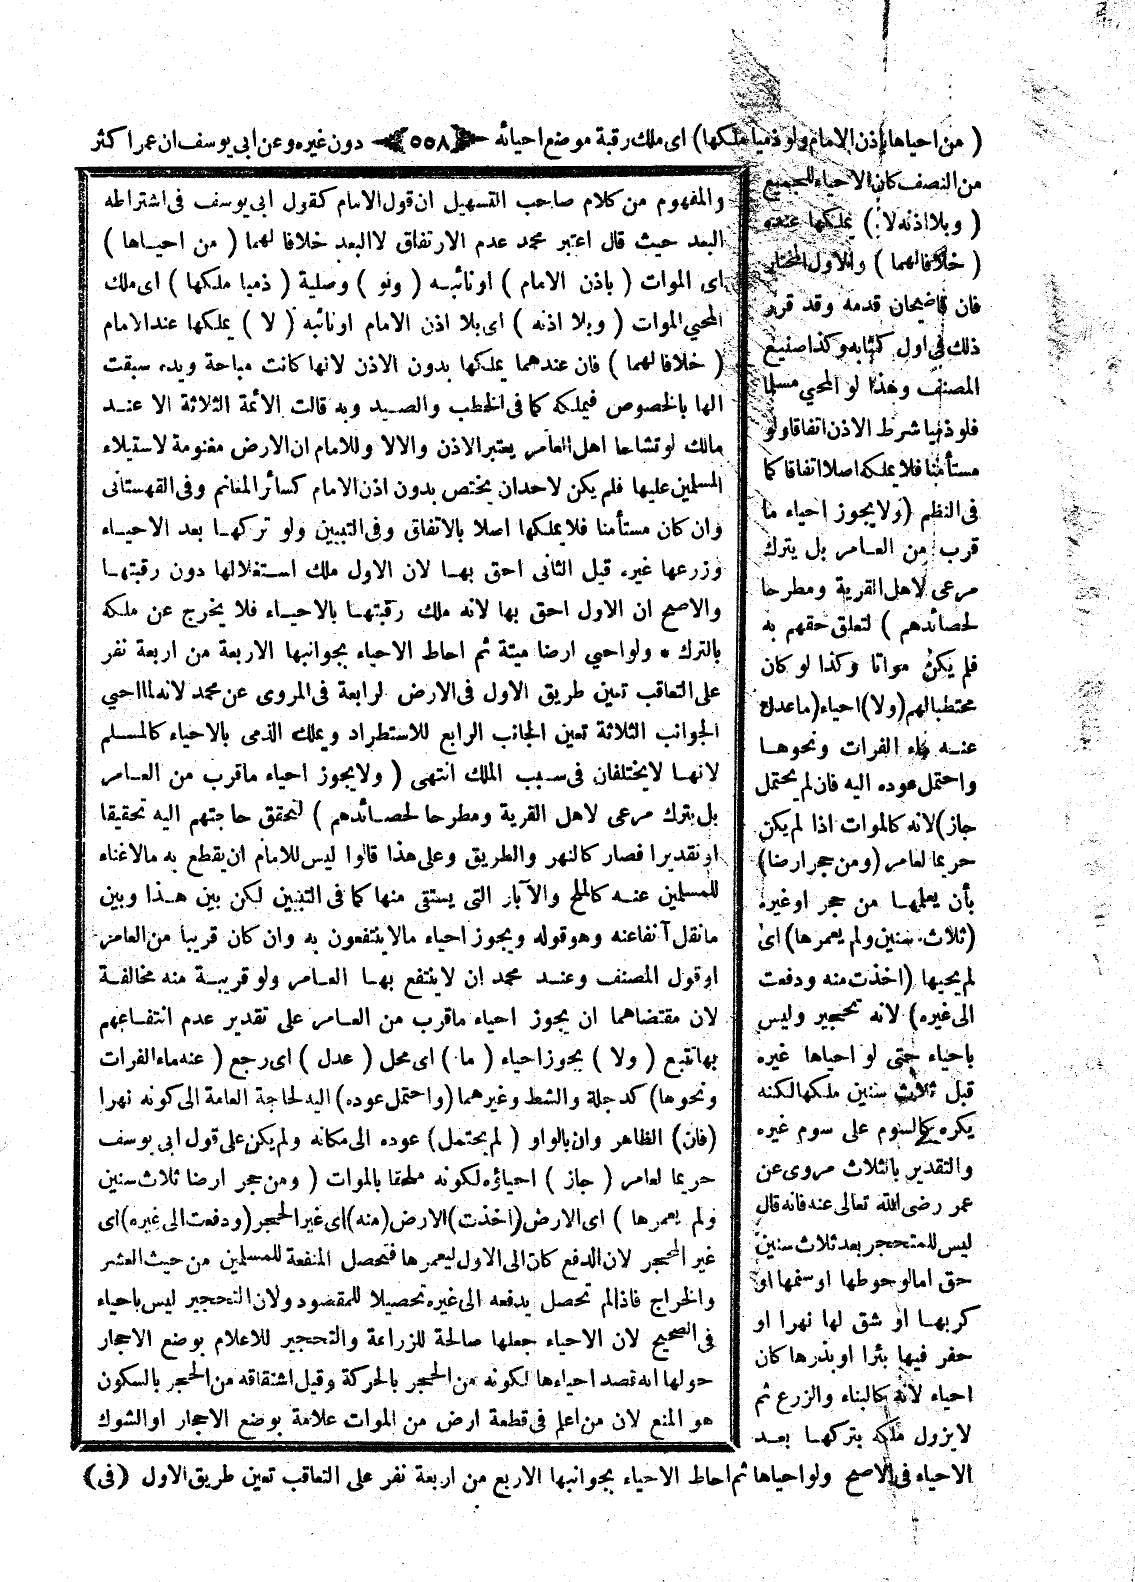 ( من احياها باذن الامام ولو ذميا ملكها) اى ملك رقبة موضع احيائه ﴿٥٥٨﴾ دون غيره وعن ابى يوسف ان عمر اكثر
من النصف كان الاحياء للجميع
( وبلا اذنه لا ) يملكها عنده
( خلافا لهما ) والاول المختار
فان قاضيخان قدمه وقد قرر
ذلك فى اول كتابه وكذا صنيع
المصنف وهذا لو المحيى مسلما
فلو ذميا شرط الاذن اتفاقا ولو
مستأمنا فلا يملكه اصلا اتفاقا كما
فى النظم (ولا يجوز احياء ما
قرب من العامر بل يترك
مرعى لاهل القرية ومطرحا
لحصائدهم ) لتعلق حقهم به
فلم يكن مواتا وكذا لو كان
محتطبا لهم (ولا) احياء (ما عدل
عنه ماء الفرات ونحوها
واحتمل عوده اليه فان لم يحتمل
جاز) لانه كالموات اذا لم يكن
حريما لعامر (ومن حجر ارضا)
بأن يعلمها من حجر او غيره
(ثلاث سنين ولم يعمرها) اى
لم يحيها (اخذت منه ودفعت
الى غيره) لانه تحجير وليس
باحياء حتى لو احياها غيره
قبل ثلاث سنين ملكها لكنه
يكره كالسوم على سوم غيره
والتقدير بالثلاث مروى عن
عمر رضى الله تعالى عنه فانه قال
ليس للمتحجر بعد ثلاث سنين
حق اما لو حوطها او سنمها او
كربها او شق لها نهرا او
حفر فيها بئرا او بذرها كان
احياء لانه كالبناء والزرع ثم
لا يزول ملكه بتركها بعد
الاحياء فى الاصح ولو احياها ثم احاط الاحياء بجوانبها الاربع من اربعة نفر على التعاقب تعين طريق الاول (فى)
والمفهوم من كلام صاحب التسهيل ان قول الامام كقول ابى يوسف فى اشتراطه
البعد حيث قال اعتبر محمد عدم الارتفاق لا البعد خلافا لهما ( من احياها )
اى الموات ( باذن الامام ) او نائبه ( ولو ) وصلية ( ذميا ملكها ) اى ملك
المحيى الموات ( وبلا اذنه ) اى بلا اذن الامام او نائبه ( لا ) يملكها عند الامام
( خلافا لهما ) فان عندهما يملكها بدون الاذن لانها كانت مباحة ويده سبقت
الها بالخصوص فيملكه كما فى الحطب والصيد وبه قالت الأئمة الثلاثة الا عند
مالك لو تشاحا اهل العامر يعتبر الاذن والا لا وللامام ان الارض مغنومة لاستيلاء
المسلمين عليها فلم يكن لاحدان يختص بدون اذن الامام كسائر المغانم وفى القهستانى
وان كان مستأمنا فلا يملكها اصلا بالاتفاق وفى التبيين ولو تركها بعد الاحياء
وزرعها غيره قيل الثانى احق بها لان الاول ملك استغلالها دون رقبتها
والاصح ان الاول احق بها لانه ملك رقبتها بالاحياء فلا يخرج عن ملكه
بالترك * ولو احيى ارضا ميتة ثم احاط الاحياء بجوانبها الاربعة من اربعة نفر
على التعاقب تعين طريق الاول فى الارض الرابعة فى المروى عن محمد لانه لما احيى
الجوانب الثلاثة تعين الجانب الرابع للاستطراد ويملك الذمى بالاحياء كالمسلم
لانها لا يختلفان فى سبب الملك انتهى ( ولا يجوز احياء ماقرب من العامر
بل يترك مرعى لاهل القرية ومطرحا لحصائدهم ) لتحقق حاجتهم اليه تحقيقا
او تقديرا فصار كالنهر والطريق وعلى هذا قالوا ليس للامام ان يقطع به مالا غناء
للمسلمين عنه كالملح والآبار التى يستقى منها كما فى التبيين لكن بين هذا وبين
مانقل آنفا عنه وهو قوله ويجوز احياء مالا ينتفعون به وان كان قريبا من العامر
او قول المصنف وعند محمد ان لا ينتفع بها العامر ولو قريبة منه مخالفة
لان مقتضاهما ان يجوز احياء ماقرب من العامر على تقدير عدم انتفاعهم
بها تتبع ( ولا ) يجوز احياء ( ما ) اى محل ( عدل ) اى رجع ( عنه ماء الفرات
ونحوها) كدجلة والشط وغيرهما (واحتمل عوده) اليه لحاجة العامة الى كونه نهرا
(فان) الظاهر وان بالواو ( لم يحتمل) عوده الى مكانه ولم يكن على قول ابى يوسف
حريما لعامر ( جاز ) احياؤه لكونه ملحقا بالموات ( ومن حجر ارضا ثلاث سنين
ولم يعمرها ) اى الارض (اخذت) الارض (منه) اى غير المحجر (ودفعت الى غيره) اى
غير المحجر لان الدفع كان الى الاول ليعمرها فتحصل المنفعة للمسلمين من حيث العشر
والخراج فاذا لم تحصل يدفعه الى غيره تحصيلا للمقصود ولان التحجير ليس باحياء
فى الصحيح لان الاحياء جعلها صالحة للزراعة والتحجير للاعلام بوضع الاحجار
حولها انه قصد احياءها لكونه من الحجر بالحركة وقيل اشتقاقه من الحجر بالسكون
هو المنع لان من اعلم فى قطعة ارض من الموات علامة بوضع الاحجار او الشوك